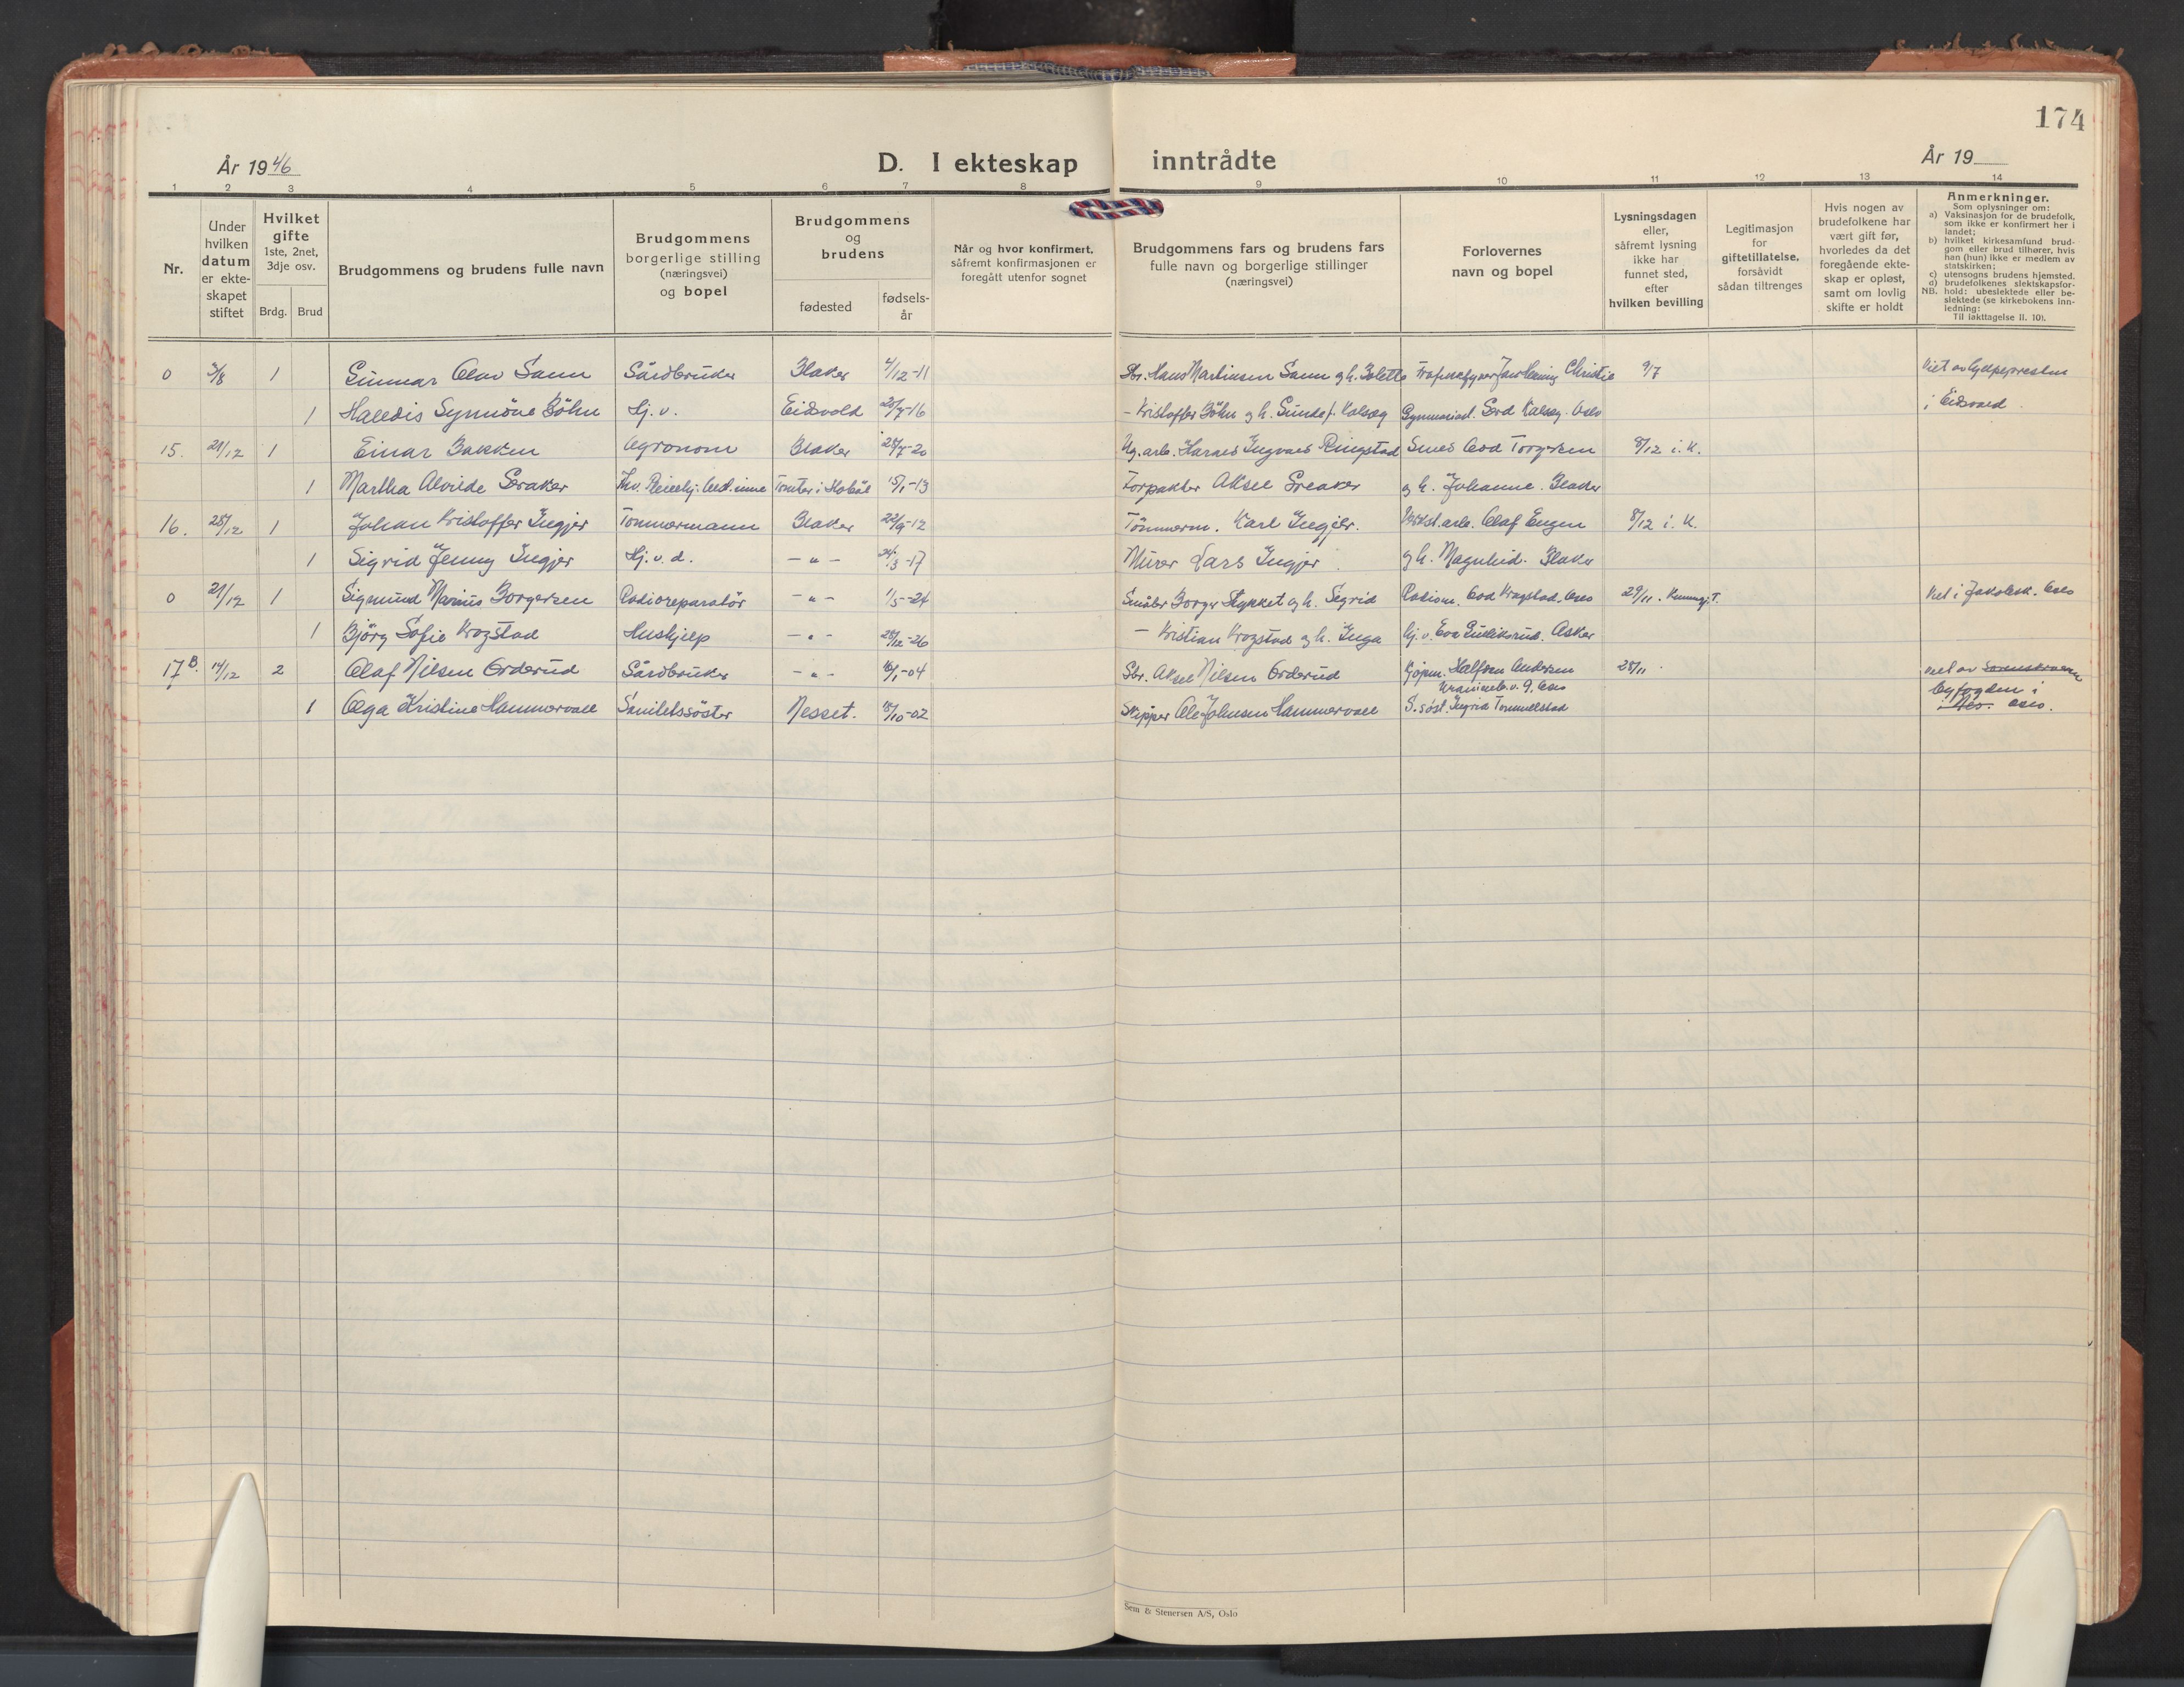 174
År 1946
D. I ekteskap inntrådte
År 19
1 2 3 4 5 6 7 8 9 10 11 12 13 14
Nr.
Under hvilken datum er ekteskapet stiftet
Hvilket gifte 1ste, 2net, 3dje osv.
Brdg. Brud
Brudgommens og brudens fulle navn
Brudgommens borgerlige stilling (næringsvei) og bopel
Brudgommens og brudens
fødested
fødsels-år
Når og hvor konfirmert, såfremt konfirmasjonen er foregått utenfor sognet
Brudgommens fars og brudens fars fulle navn og borgerlige stillinger (næringsvei)
Forlovernes navn og bopel
Lysningsdagen eller, såfremt lysning ikke har funnet sted, efter hvilken bevilling
Legitimasjon for giftetillatelse, forsåvidt sådan tiltrenges
Hvis nogen av brudefolkene har vært gift før, hvorledes da det foregående ekteskap er opløst, samt om lovlig skifte er holdt
Anmerkninger.
Som oplysninger om:
a) Vaksinasjon for de brudefolk, som ikke er konfirmert her i landet;
b) hvilket kirkesamfund brudgom eller brud tilhører, hvis han (hun) ikke er medlem av statskirken;
c) utensogns brudens hjemsted,
d) brudefolkenes slektskapsforhold: ubeslektede eller beslektede (se kirkebokens innledning:
NB. Til iakttagelse II. 10).
0 3/8 1 Gunnar Olav Sann Gårdbruker Blaker 4/12-11 Gbr. Hans Martinsen Sann og h. Christie 9/7 Viet av hjelpepresten
1 Halldis Synnöve Böhn Hj. v. Eidsvold 20/7-16 - Kristoffer Böhn og h. Oslo i Eidsvold.
15. 21/12 1 Einar Bakken Agronom Blaker 28/7-20 Ug. arb. Ingvald Ringstad Smed Odd Torgersen 8/12 i. K.
1 Martha Alvilde Greaker Tomter i Hobøl 15/1-13 Forpakter Aksel Greaker og h. Johanne. Blaker
16. 28/12 1 Johan Kristoffer Ingjer Tömmermann Blaker 22/9-12 Tömmerm. Karl Ingjer. Verkst. arb. Olaf Engen 8/12 i. K.
1 Sigrid Jenny Ingjer Hj. v. d. - " - 24/3-17 Murer Lars Ingjer. og h. Magnhild. Blaker
0 21/12 1 Sigmund Marius Borgersen Radioreparatör - " - 1/5-24 Småbr Borger Stykket og h. Sigrid Odd Krogstad. Oslo 29/11. Viet i Jakobsk. Oslo
1 Björg Sofie Krogstad Hushjelp - " - 28/12-26 - Kristian Krogstad og h. Inga Hj. v. Eva Gulliksrud. Asker
17 B. 14/12 2 Olaf Nilsen Orderud Gårdbruker - " - 16/1-04 Gbr. Aksel Nilsen Orderud Kjöpm. Halfdan Andersen 28/11. viet av Sorenskriveren
Uranienb. v. 9. Oslo
Byfogden i
1 Olga Kristine Hammervoll Sanitetssöster Nesset. 18/10-02 Skipper Ole Johnsen Hammervoll S. söst. Ingrid Tommelstad Oslo.
Sem & Stenersen A/S, Oslo